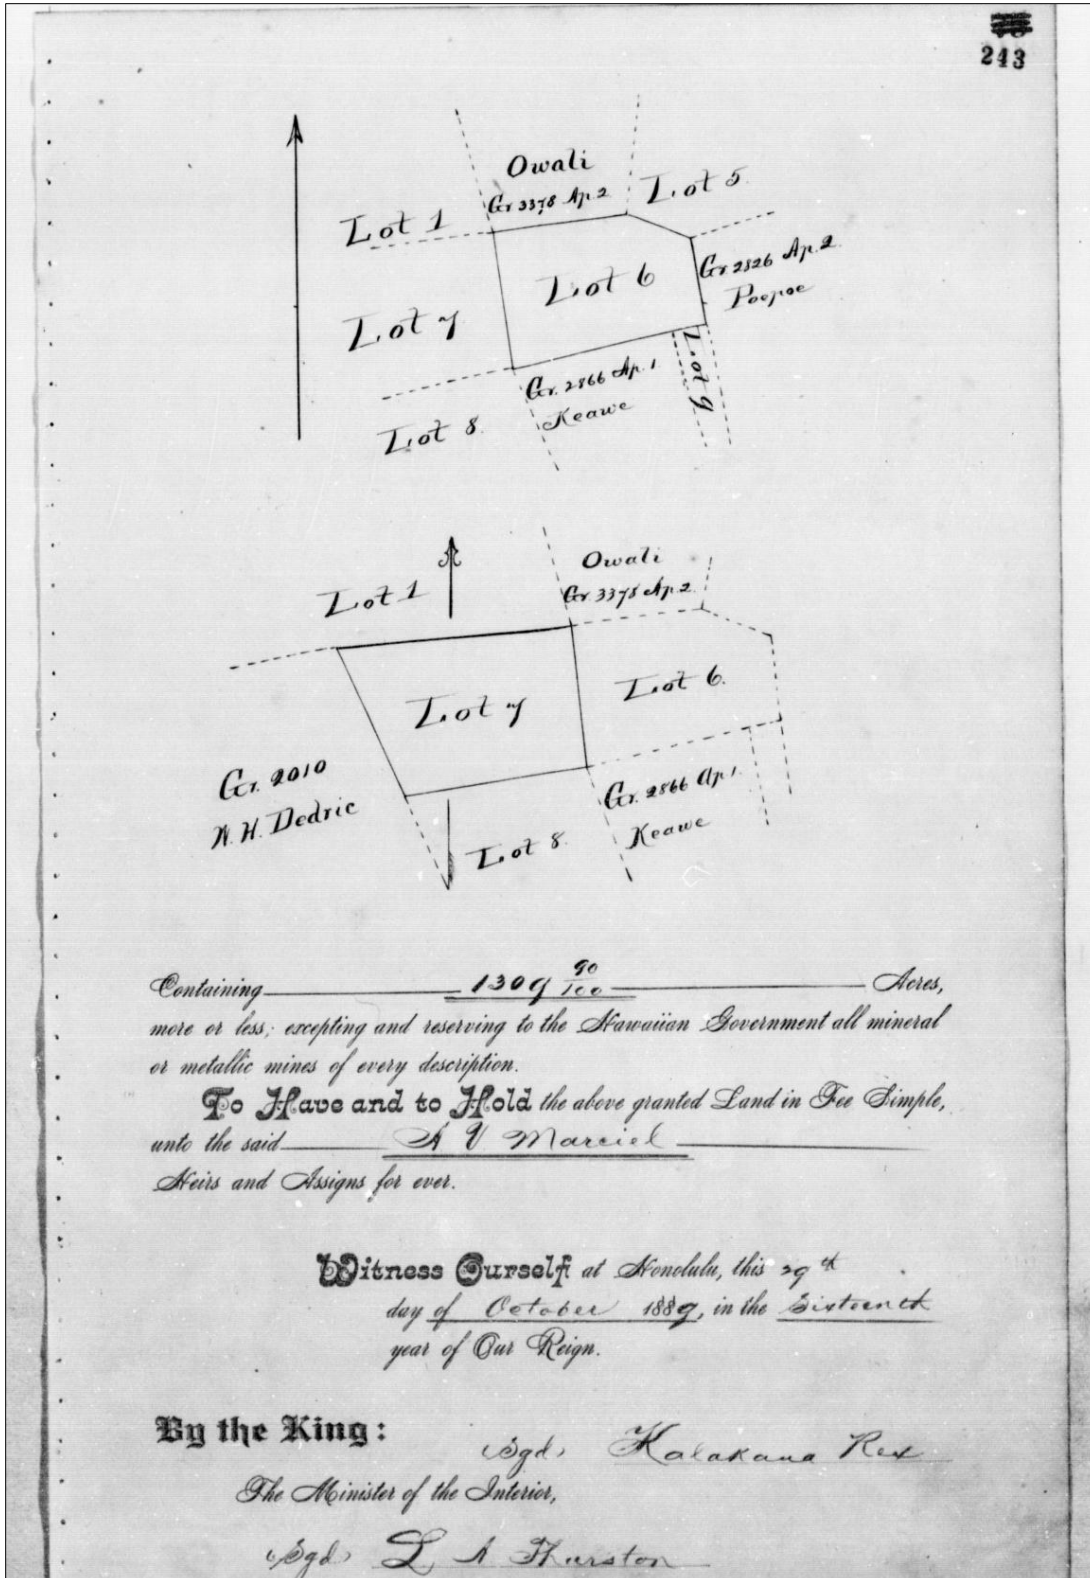 243
Owali
Gr 3378 Ap. 2
Lot 5.
Lot 1
Lot 6
Gr 2826 Ap. 2.
Poepoe
Lot 7
Gr. 2866 Ap. 1.
Keawe
Lot 9
Lot 8.
N
Owali
Gr. 3378 Ap. 2.
Lot 1
Lot 6.
Lot 7
Gr. 2010
W. H. Dedric
Gr. 2866 Ap 1.
Keawe
Lot 8.
Containing 1309 90/100 Acres,
more or less; excepting and reserving to the Hawaiian Government all mineral
or metallic mines of every description.
To Have and to Hold the above granted Land in Fee Simple,
unto the said A V Marciel
Heirs and Assigns for ever.
Witness Ourself at Honolulu, this 29th
day of October 1889, in the Sixteenth
year of Our Reign.
By the King:
(Sgd) Kalakaua Rex
The Minister of the Interior,
(Sgd) L A Thurston